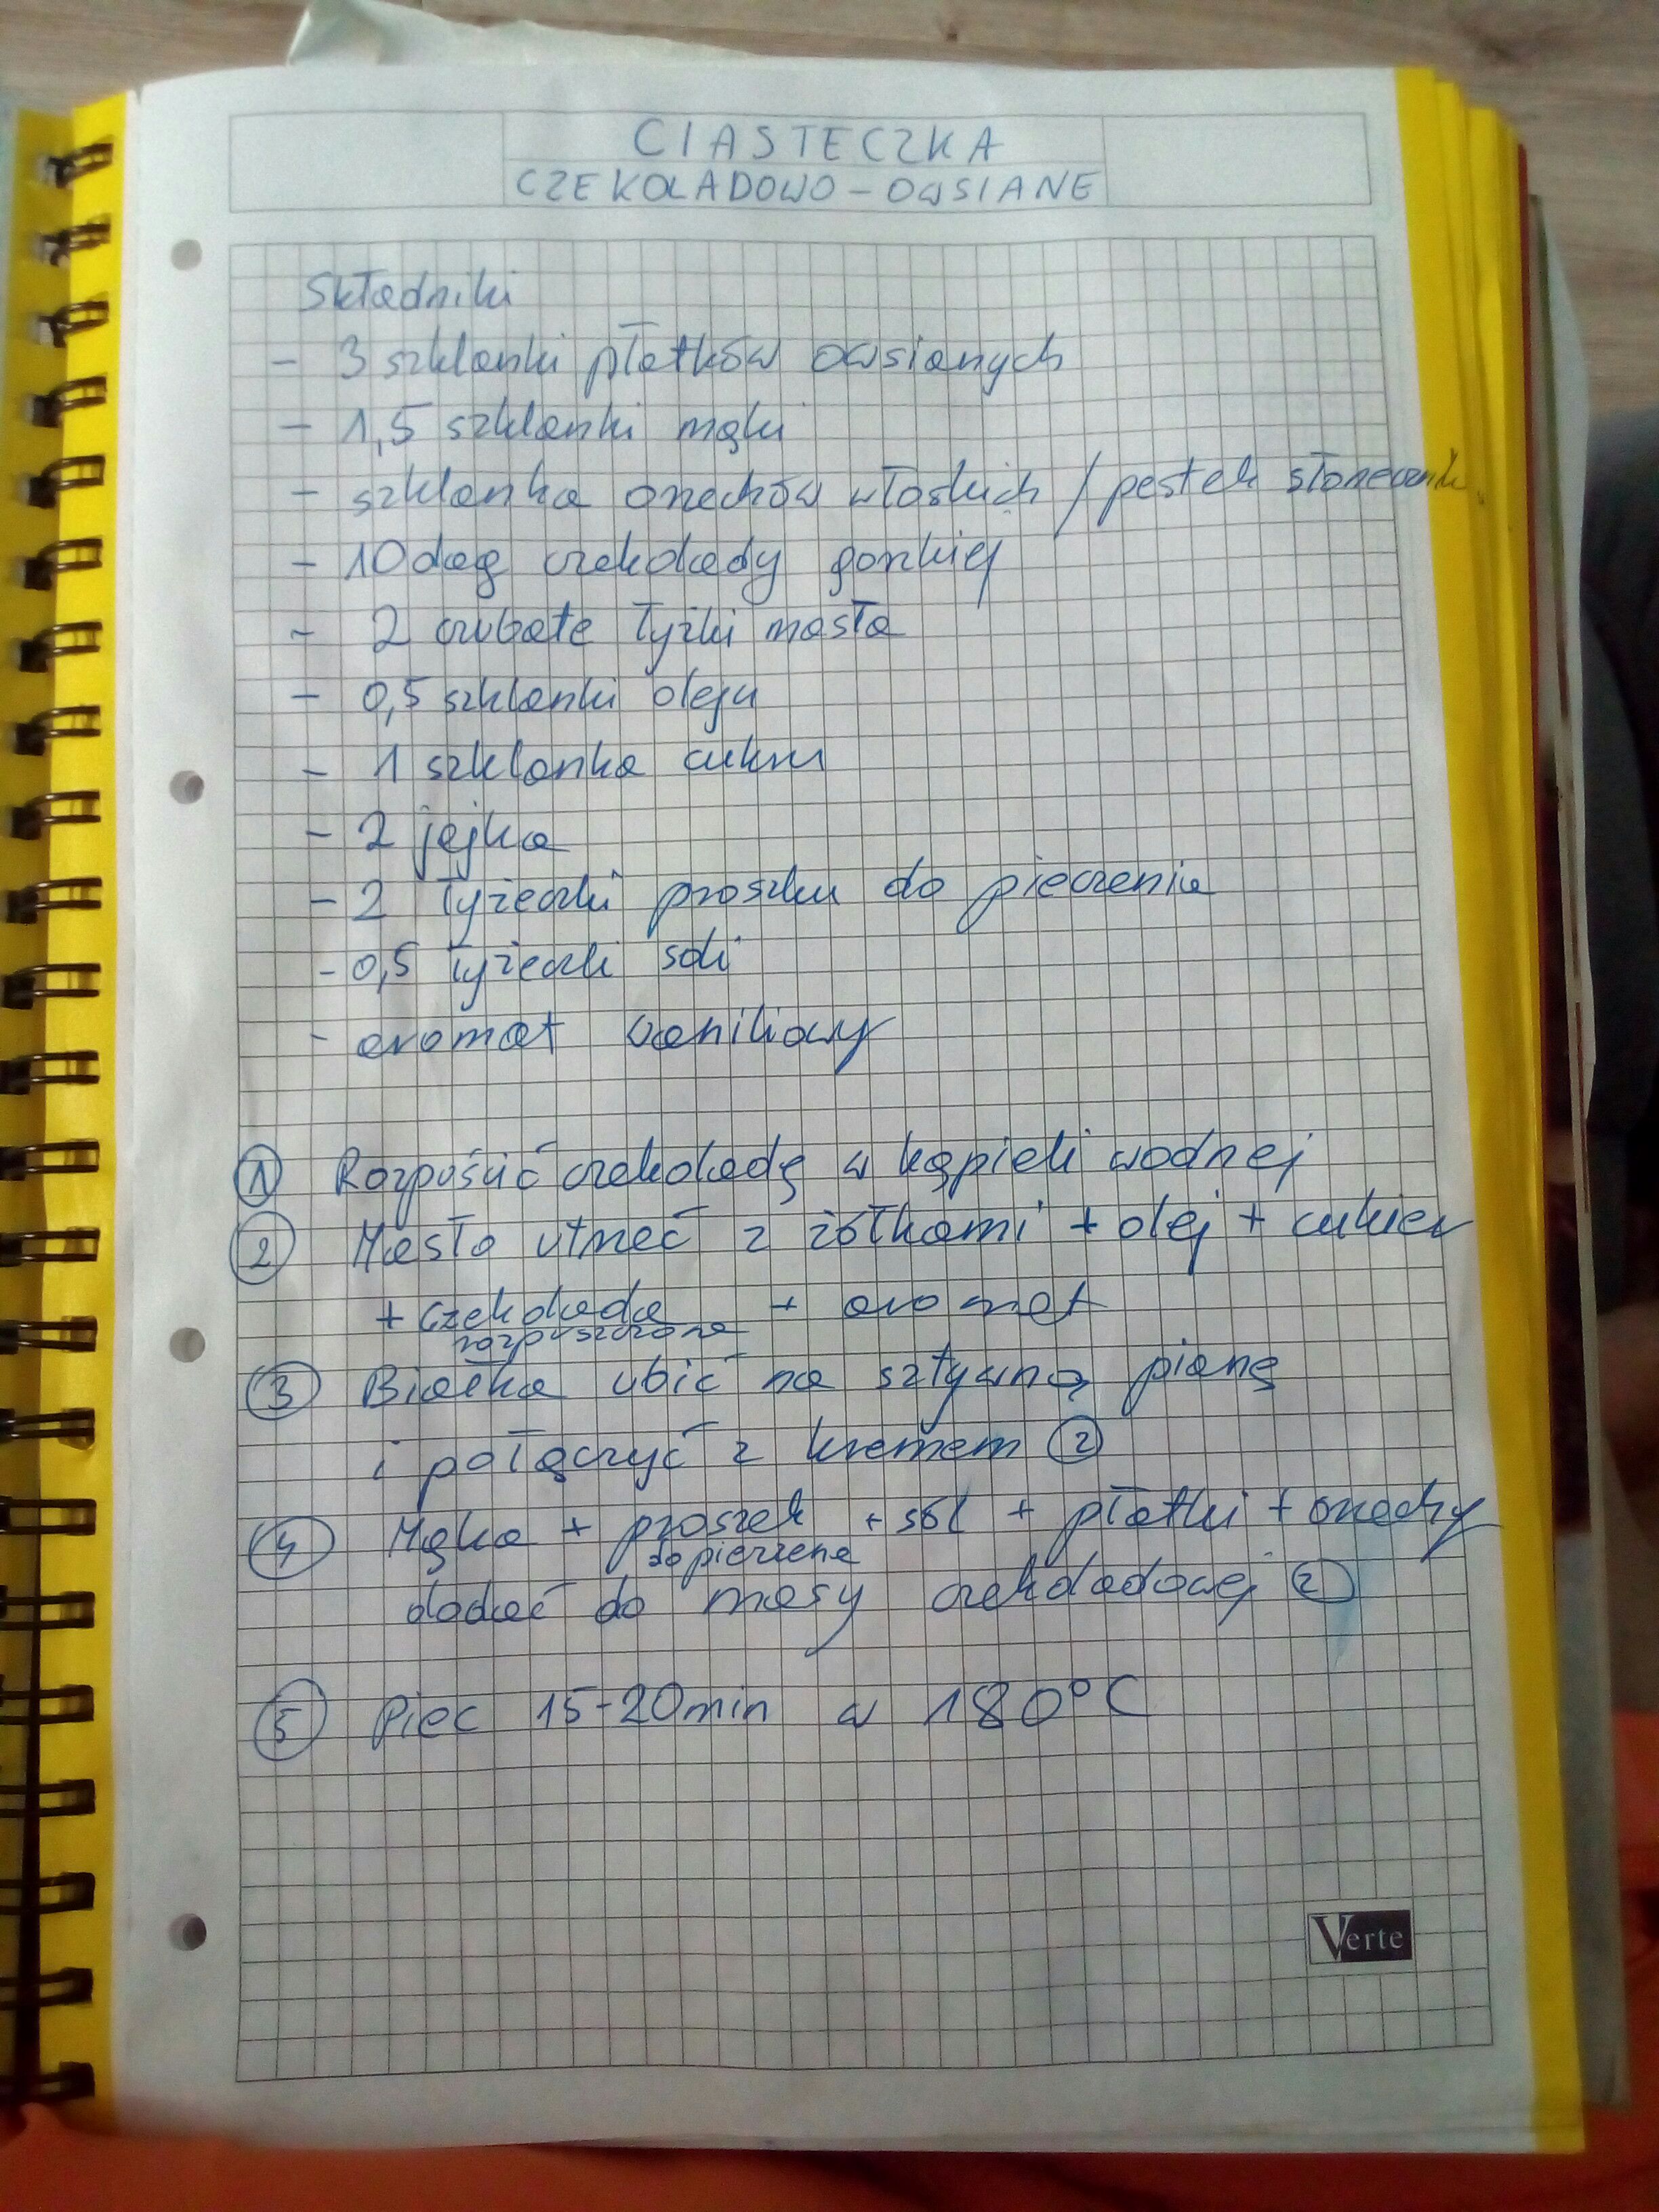 CIASTECZKA
CZEKOLADOWO - OWSIANE
Składniki
- 3 szklanki płatków owsianych
- 1,5 szklanki mąki
- szklanka orzechów włoskich / pestek słonecznik
- 10 dag czekolady gorzkiej
- 2 czubate łyżki masła
- 0,5 szklanki oleju
- 1 szklanka cukru
- 2 jajka
- 2 łyżeczki proszku do pieczenia
- 0,5 łyżeczki soli
- aromat waniliowy
1 Rozpuścić czekoladę w kąpieli wodnej
2 Masło utrzeć z żółtkami + olej + cukier
+ czekolada + aromat
rozpuszczona
3 Białka ubić na sztywną pianę
i połączyć z kremem 2
4 Mąka + proszek + sól + płatki + orzechy
do pieczenia
dodać do masy czekoladowej 2
5 Piec 15-20 min w 180°C
Verte